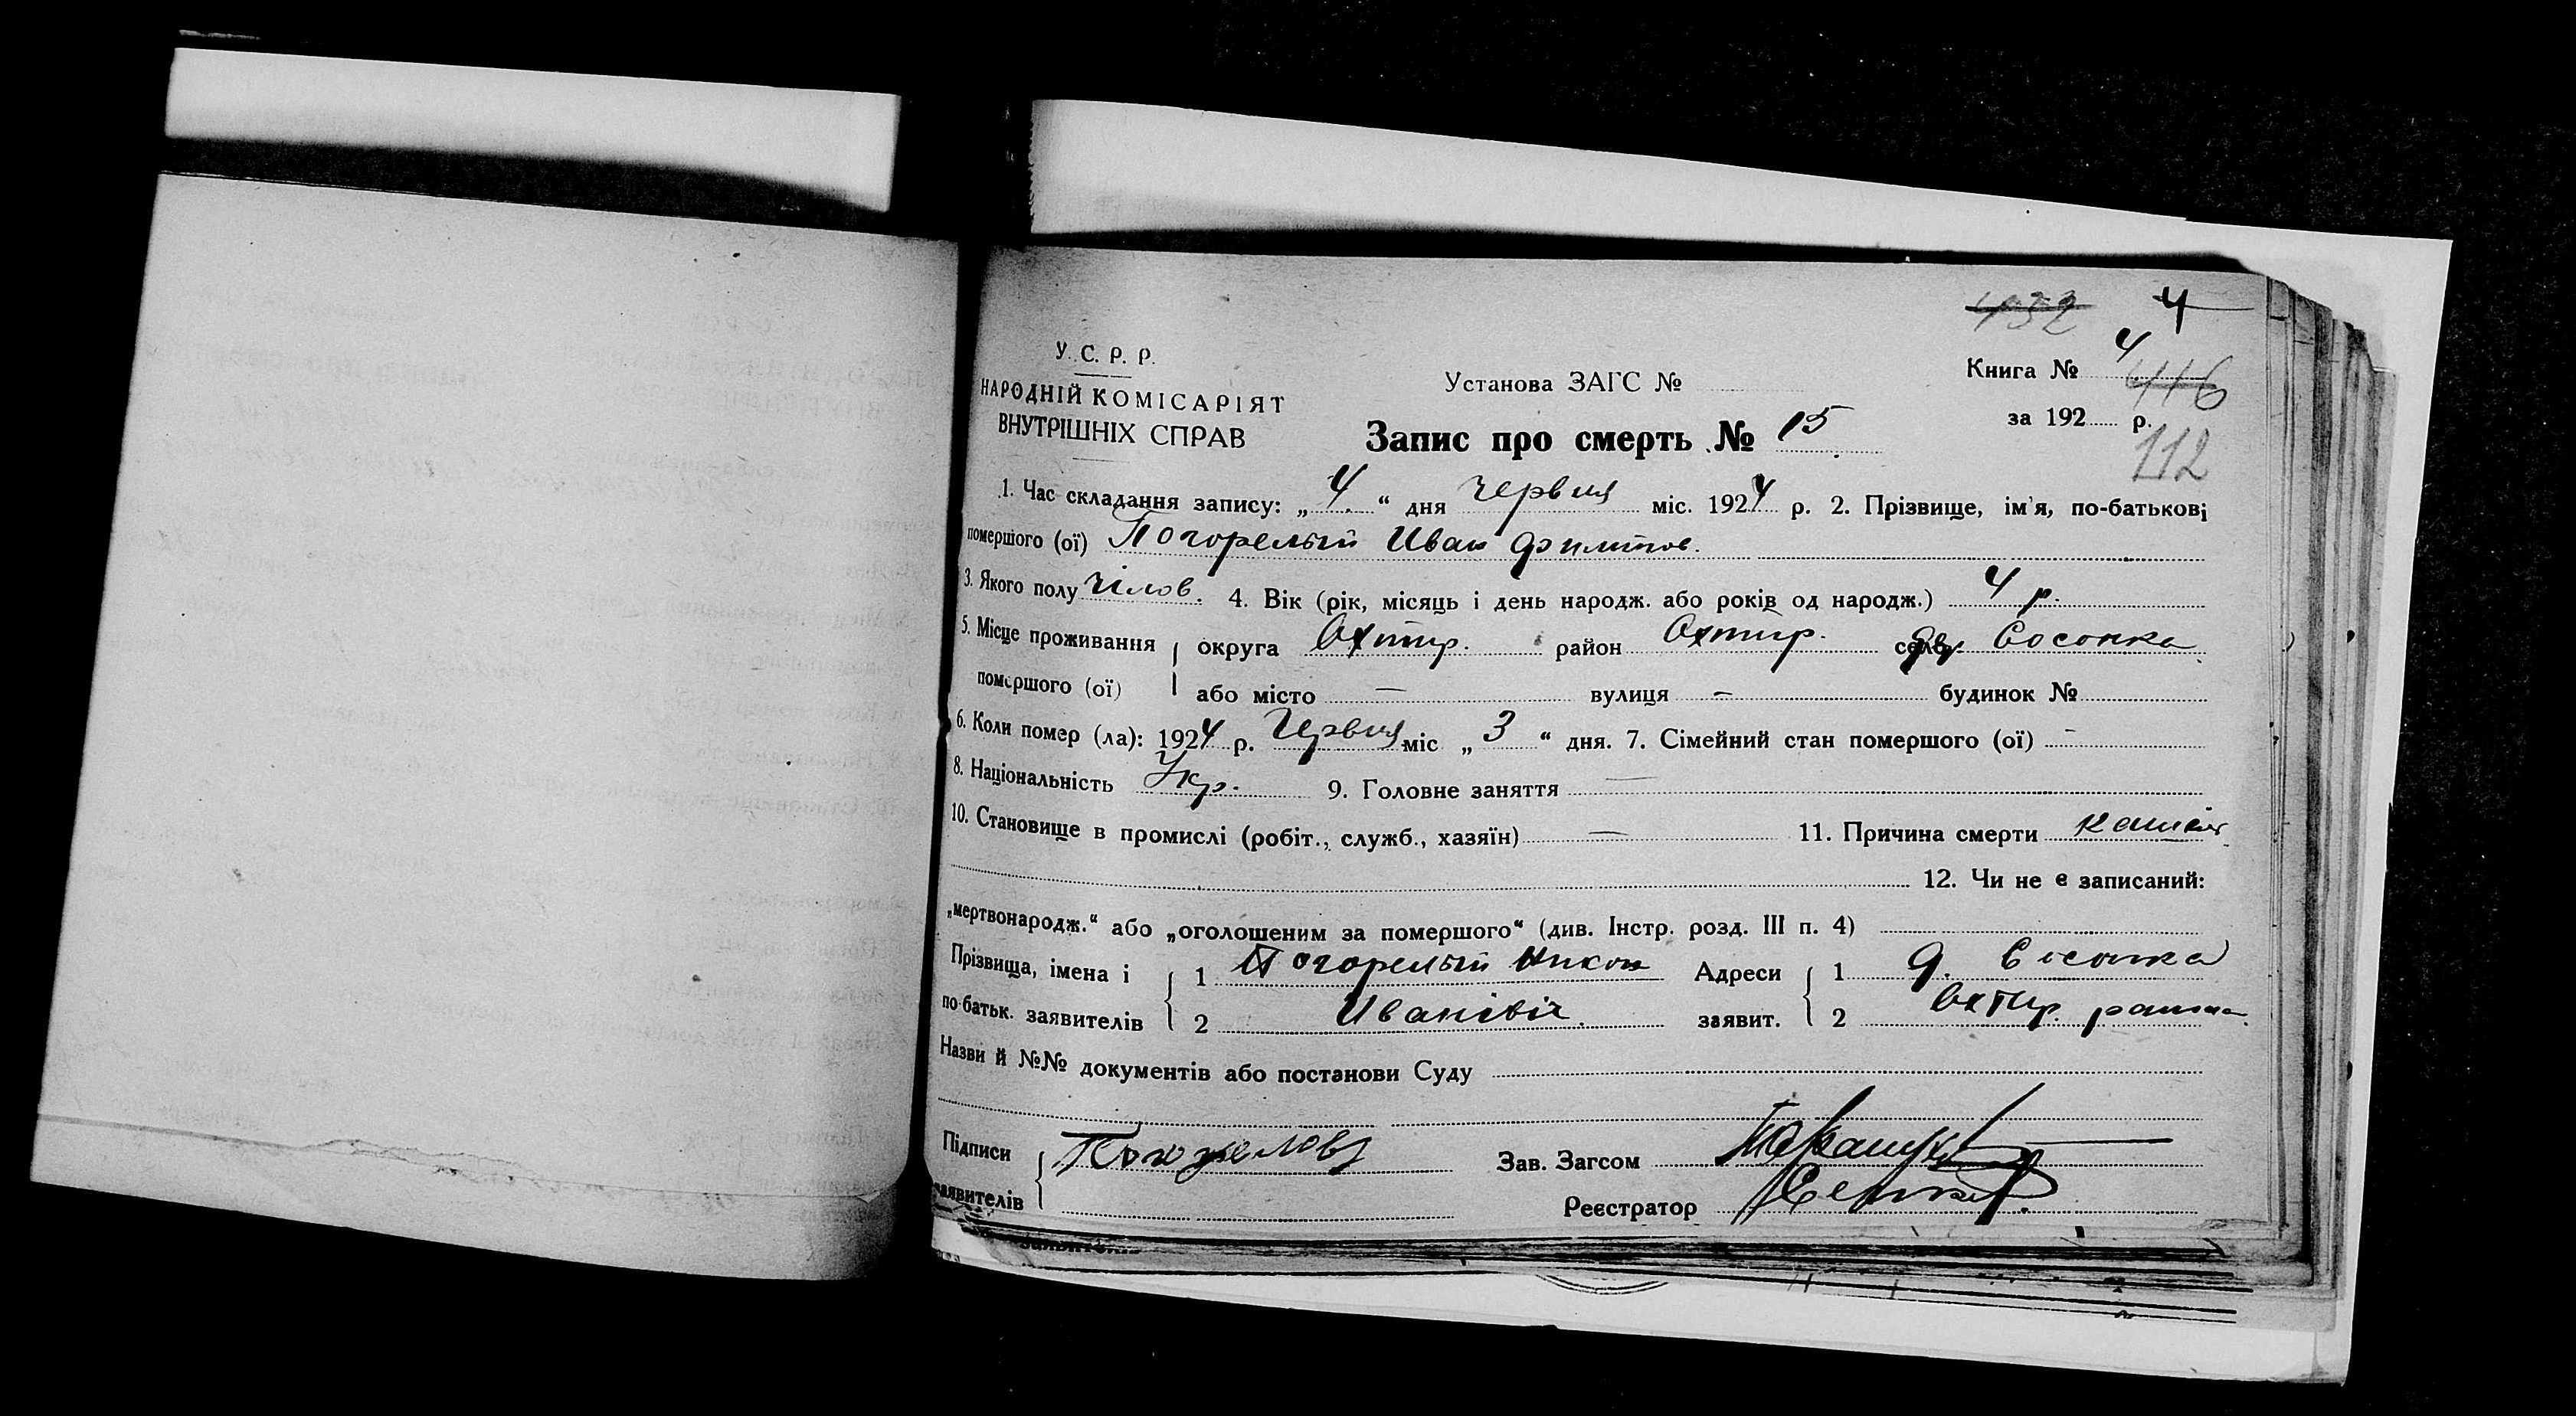 432 4
У. С. Р. Р.
НАРОДНІЙ КОМІСАРІЯТ
ВНУТРІШНІХ СПРАВ
Установа ЗАГС №
Книга № 4 416
за 192 р.
112
Запис про смерть № 15
1. Час складання запису: „ 4 “ дня червня міс. 1924 р. 2. Прізвище, ім'я, по-батькові
помершого (ої) Погорелый Иван
3. Якого полу чілов. 4. Вік (рік, місяць і день народж. або років од народж.) 4 р.
5. Місце проживання округа Охтир. район Охтир. село Сосонка
помершого (ої) або місто — вулиця — будинок №
6. Коли помер (ла): 1924 р. Червня міс „ 3 “ дня. 7. Сімейний стан помершого (ої) -
8. Національність Укр. 9. Головне заняття —
10. Становище в промислі (робіт., служб., хазяїн) — 11. Причина смерти кашель
12. Чи не є записаний:
„мертвонародж.“ або „оголошеним за помершого“ (див. Інстр. розд. III п. 4)
Прізвища, імена і 1 Погорелый Никон Адреси 1 д. Сосонка
по-батьк. заявителів 2 Іванівіч. заявит. 2 Охтир.
Назви й №№ документів або постанови Суду
Підписи
заявителів
Зав. Загсом
Реєстратор